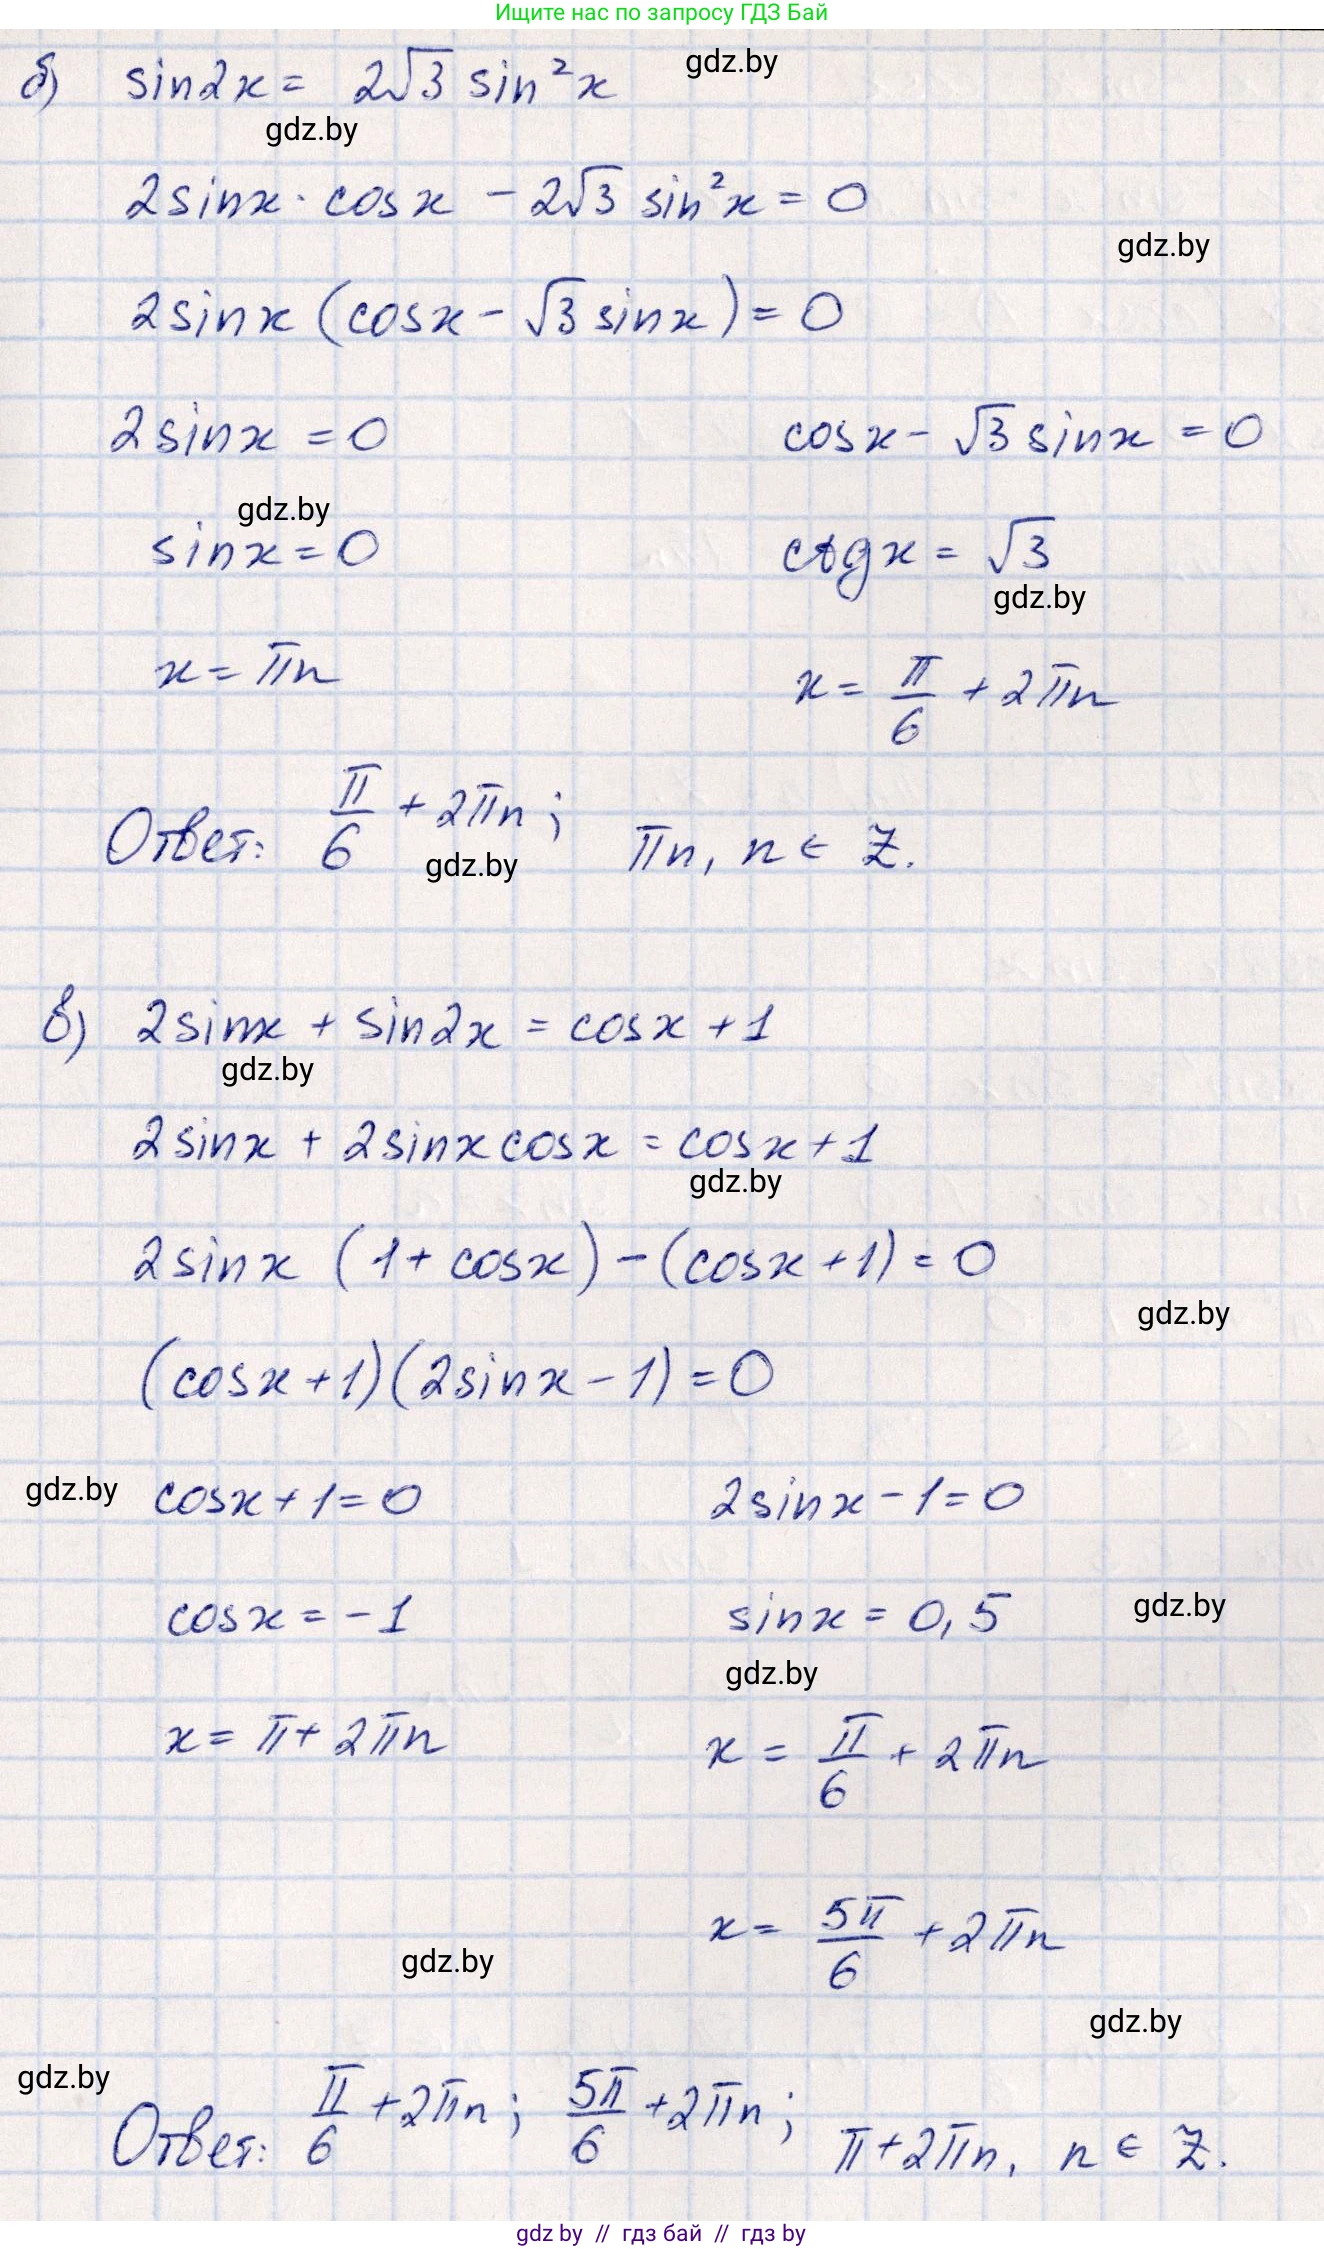 Ищите нас по запросу ГДЗ Бай
б) sin2x = 2√3 sin²x
gdz.by
gdz.by
2sinx · cosx − 2√3 sin²x = 0
gdz.by
2sinx (cosx − √3 sinx) = 0
2sinx = 0 cosx − √3 sinx = 0
gdz.by
sinx = 0 ctgx = √3
gdz.by
x = πn x = π/6 + 2πn
Ответ: π/6 + 2πn; πn, n ∈ Z.
gdz.by
в) 2sinx + sin2x = cosx + 1
gdz.by
2sinx + 2sinxcosx = cosx + 1
gdz.by
2sinx (1 + cosx) − (cosx + 1) = 0
gdz.by
(cosx + 1)(2sinx − 1) = 0
gdz.by cosx + 1 = 0 2sinx − 1 = 0
cosx = −1 sinx = 0,5 gdz.by
gdz.by
x = π + 2πn x = π/6 + 2πn
x = 5π/6 + 2πn
gdz.by
gdz.by
gdz.by
Ответ: π/6 + 2πn; 5π/6 + 2πn; π + 2πn, n ∈ Z.
gdz by // гдз бай // гдз by